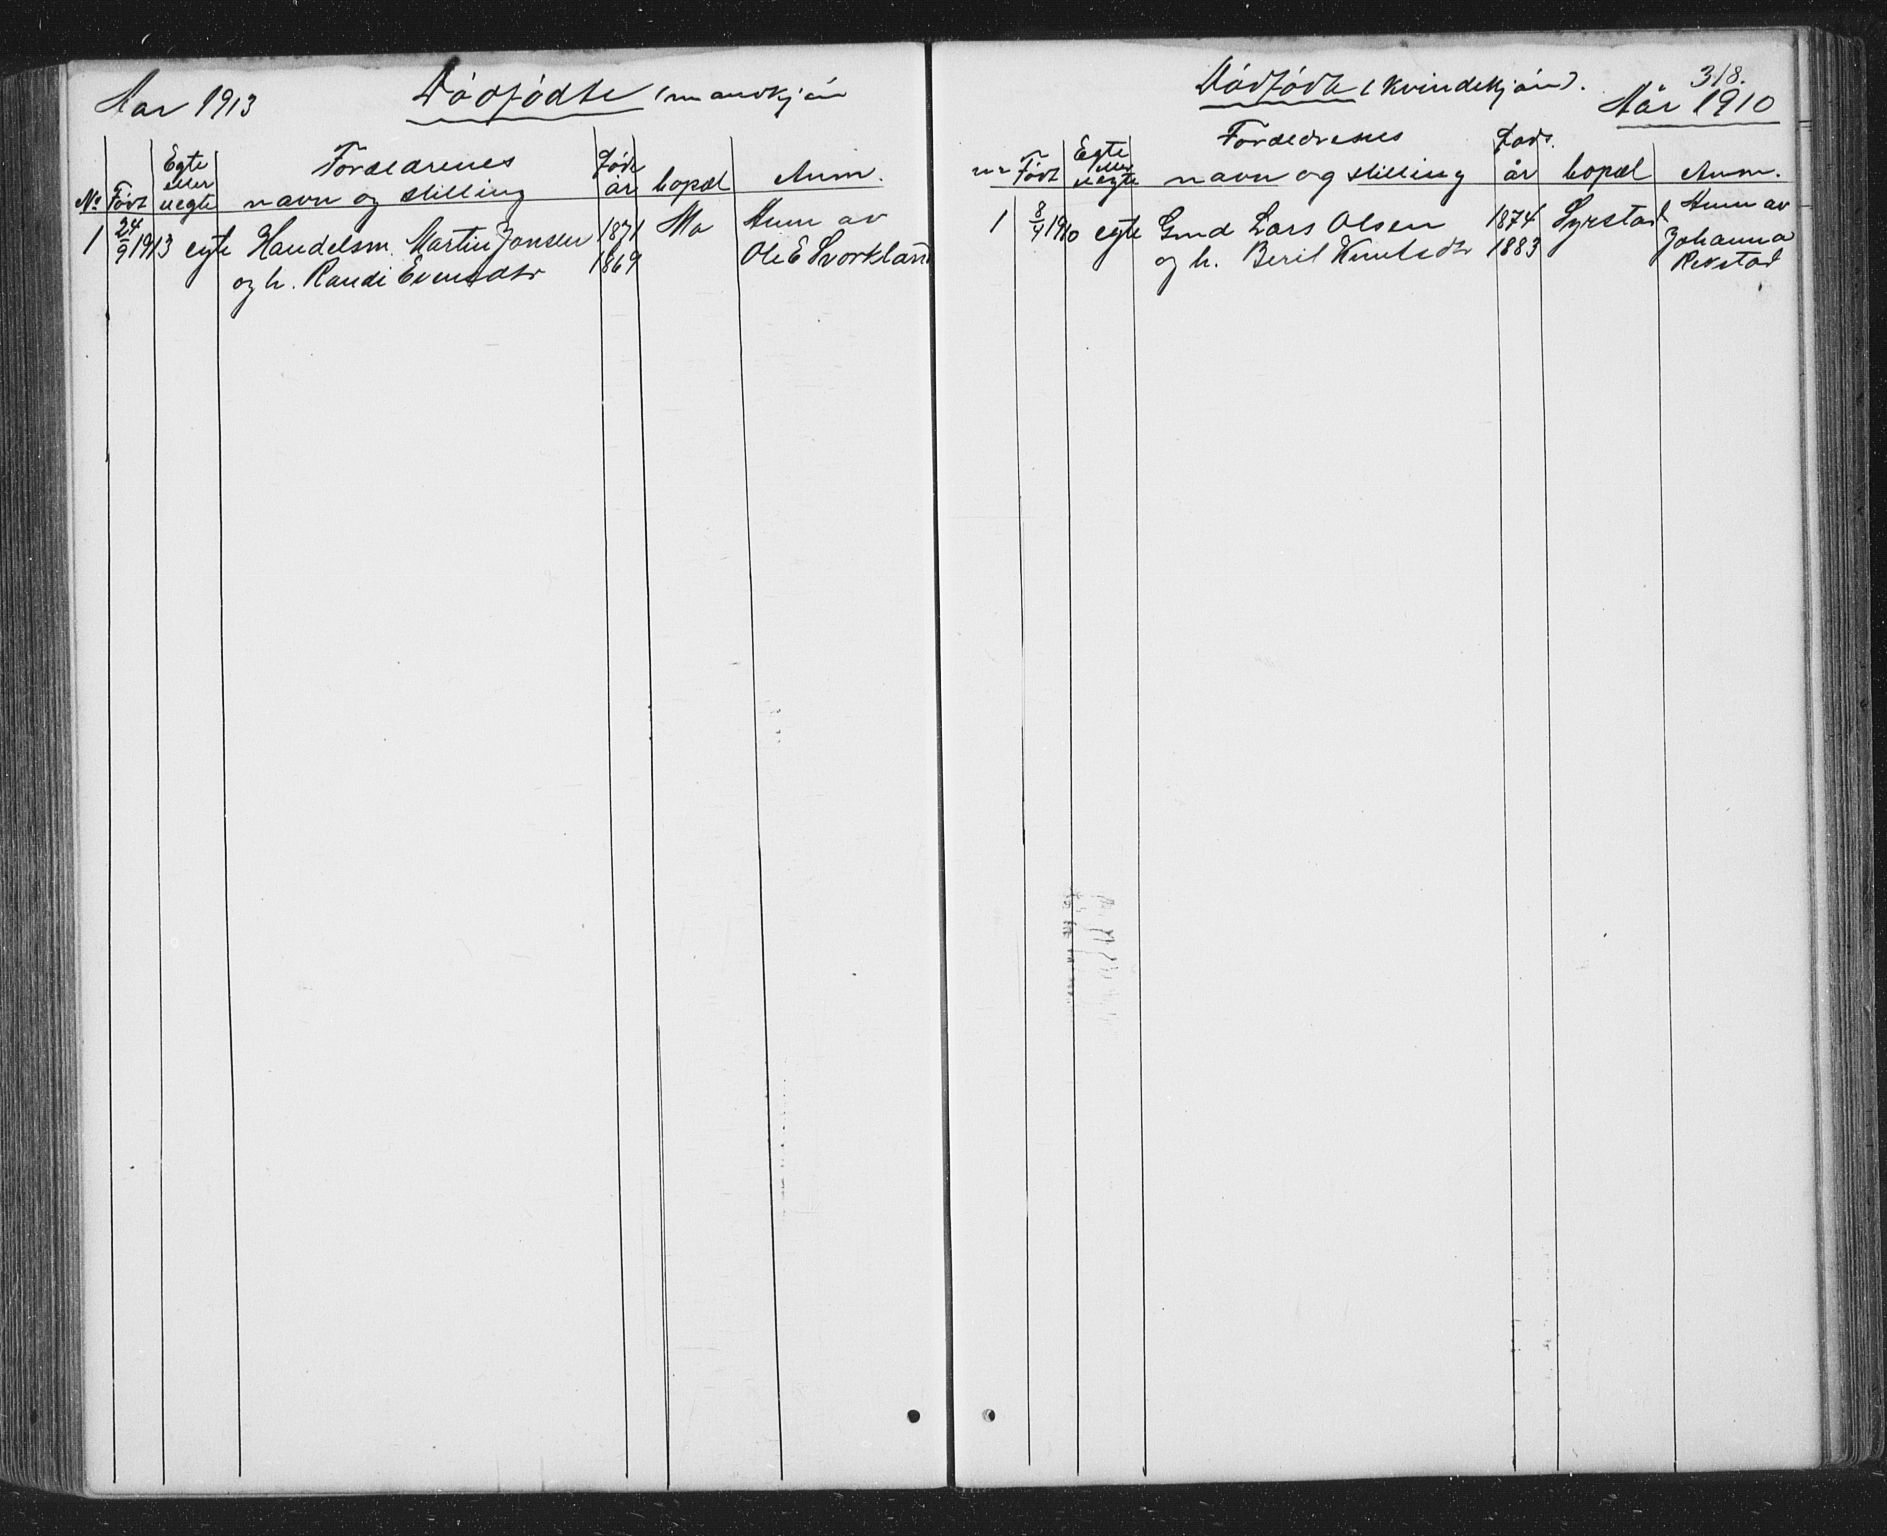 Aar 1913 Dødfødte (mandkjøn
No Født Egte eller uegte Forældrenes navn og stilling Føds år bopæl Anm.
1 24/9 1913 egte Handelsm. Martin Jonsen 1871 Mo Anm av
og h. Randi Evensdtr 1869 Ole E Svorkland
318.
Dødfødte (kvindekjøn). Aår 1910
nr Født Egte eller uegte Forældrenes navn og stilling Føds. år bopæl Anm.
1 8/9 1910 egte Gmd Lars Olsen 1874 Syrstad Anm av
og h. Berit Knutsdtr 1883 Johanna
Rekstad